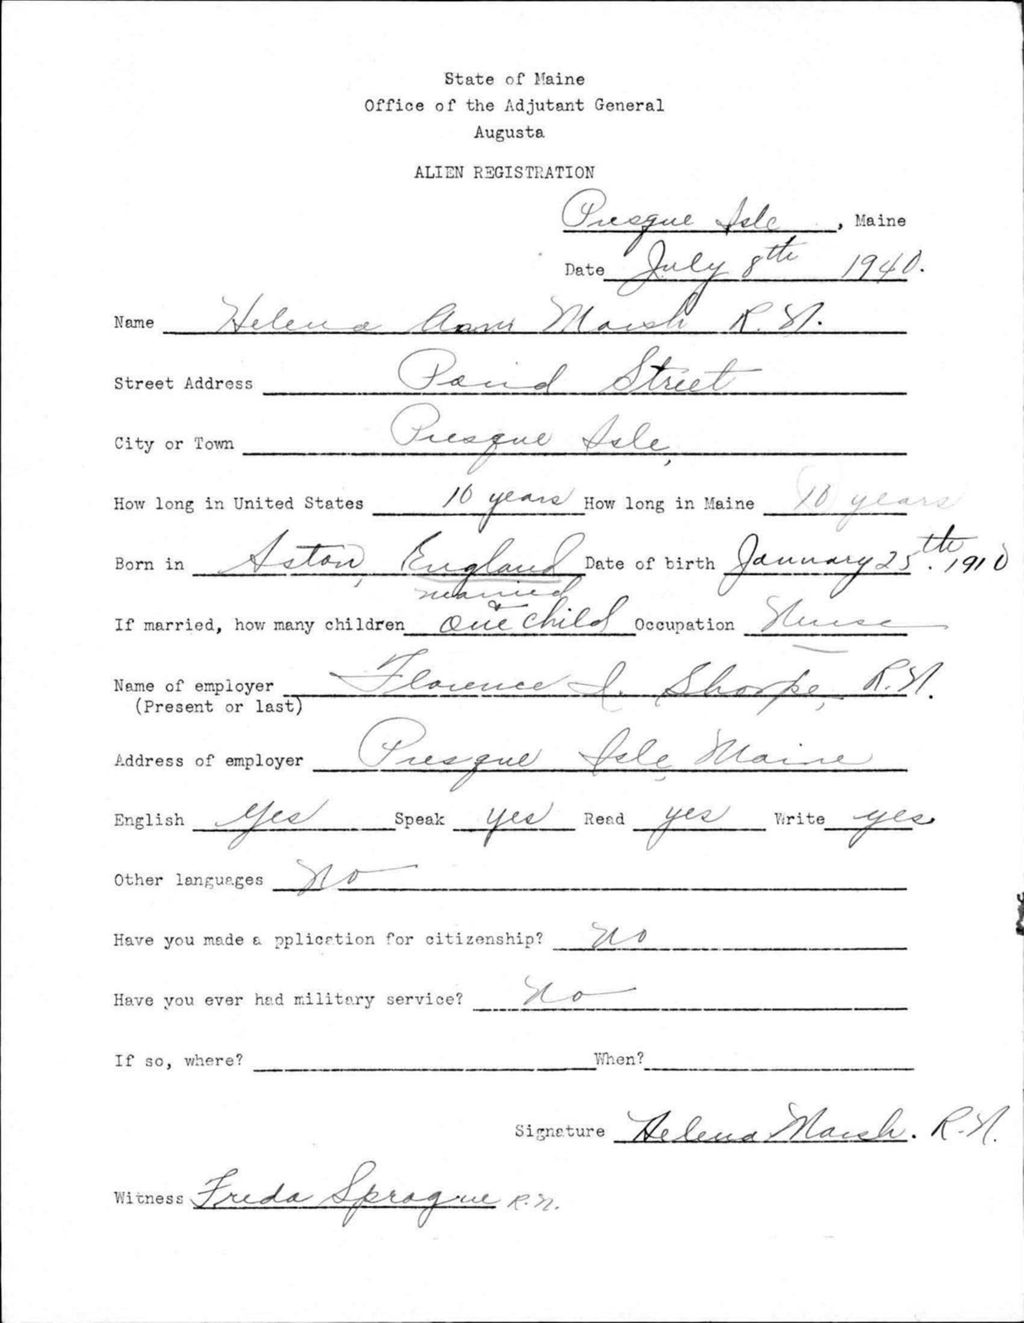 State of Maine
Office of the Adjutant General
Augusta
ALIEN REGISTRATION
Presque Isle, Maine
Date July 8th 1940.
Name Helena Ann Marsh R.N.
Street Address Pond Street
City or Town Presque Isle,
How long in United States 10 years How long in Maine 10 years
Born in Aston, England Date of birth January 25th. 1910
married
If married, how many children & one child Occupation Nurse
Name of employer Florence I. Shorpe, R.N.
(Present or last)
Address of employer Presque Isle, Maine
English Yes Speak yes Read yes Write yes
Other languages No
Have you made a pplication for citizenship? No
Have you ever had military service? No
If so, where? When?
Signature Helena Marsh. R.N.
Witness Freda Sprague R.N.